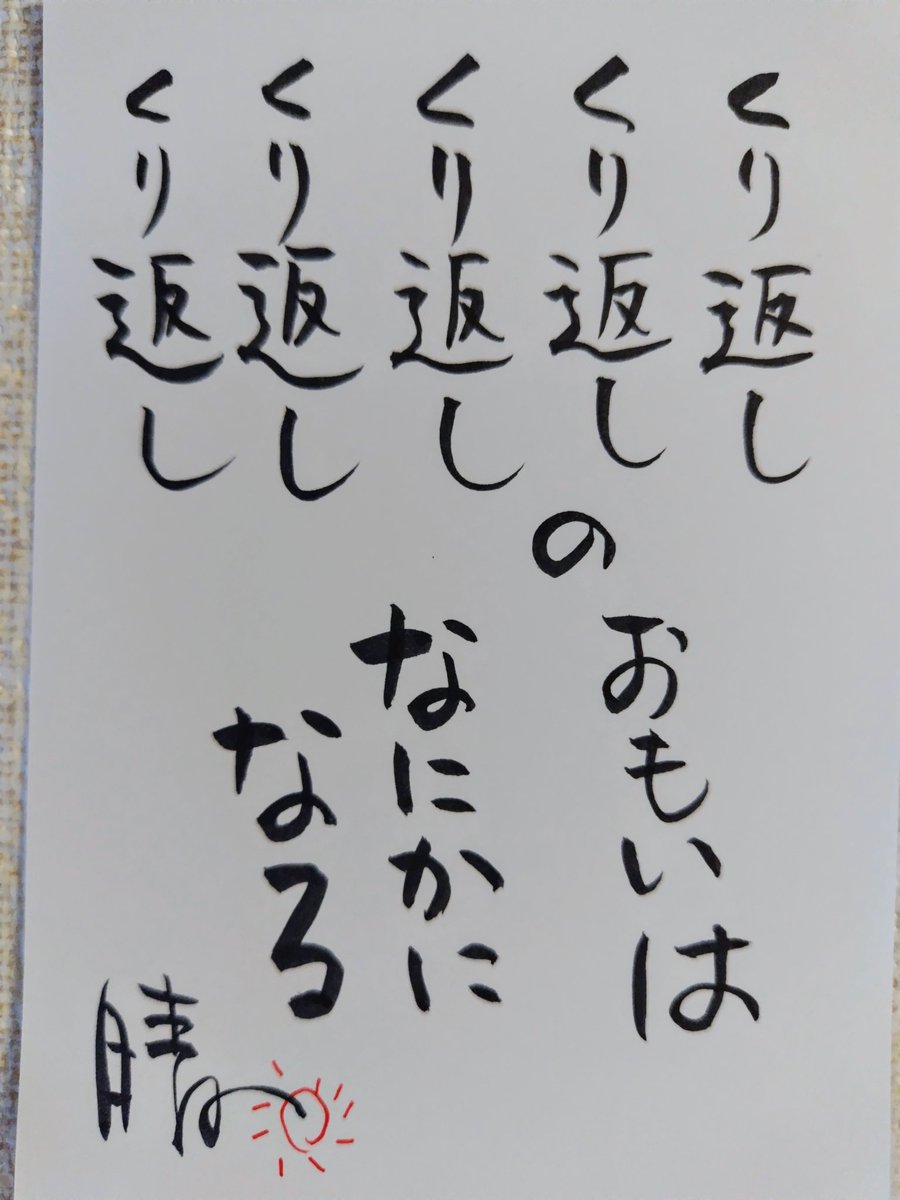 くり返し
くり返し
くり返し
くり返し
くり返し
の
おもいは
なにかに
なる
晴